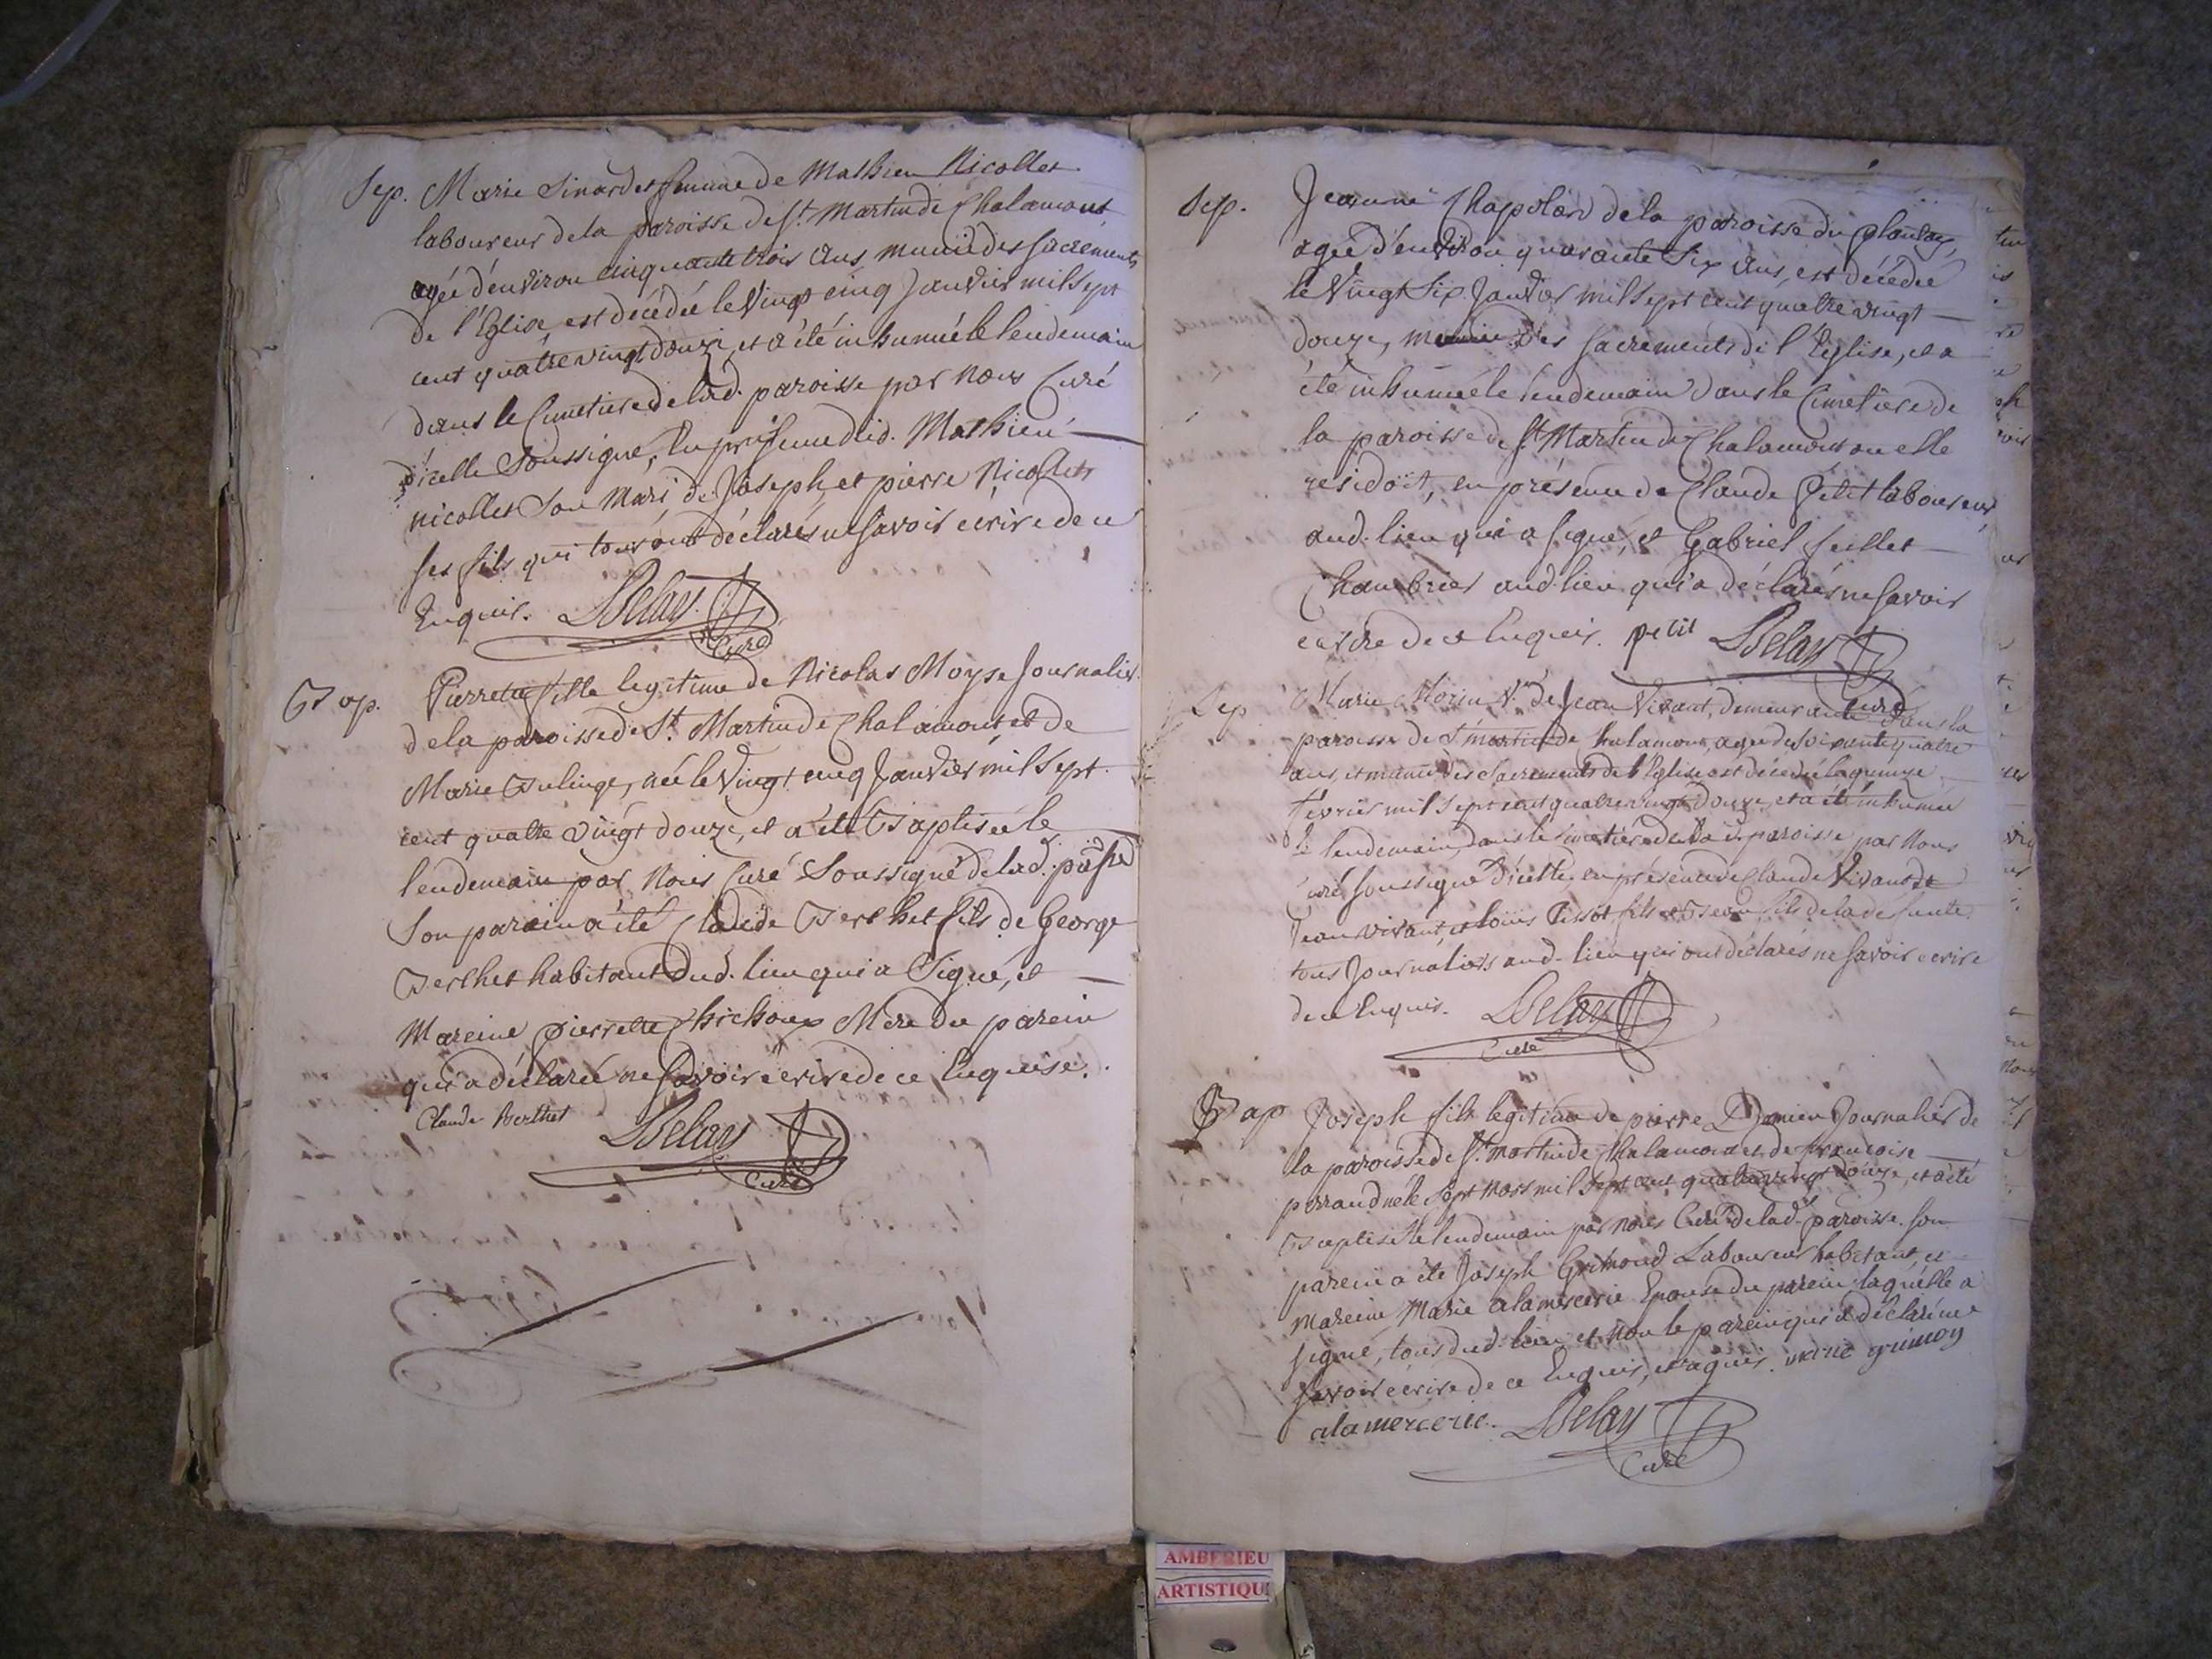 Sep. Marie Sinardet femme de Mathieu Nicollet
laboureur de la paroisse de St. Martin de Chalamont
agée d'environ cinquante trois ans munie des sacréments
de l'Eglise, est décédée le Vingt cinq Janvier mil Sept
cent quatre vingt douze, et a été inhumée le lendemain
dans le Cimetiere de lad. paroisse par nous Curé
d'icelle Soussigné, En présence dud. Mathieu
nicollet Son Mari, de Joseph et pierre Nicollet
ses fils qui tous ont déclarés ne savoir ecrire de ce
Enquis. Delay Curé
Bap. Pierrette fille legitime de Nicolas Moyse Journalier
de la paroisse de St. Martin de Chalamont, et de
Marie Julinge, née le Vingt cinq Janvier mil Sept
cent quatre vingt douze, et a été Baptisée le
lendemain par Nous Curé Soussigné de lad. paisse
Son parein a été Claude Berthet fils de George
Berthet habitant dud. lieu qui a Signé, et
Mareine pierrette Chichoux Mere du parein
qui a déclarée ne Savoir ecrire de ce Enquise.
Claude Berthet Delay Curé
Sep. Jeanne Chapolard de la paroisse du plantay,
agée d'environ quarante Six ans, est décédée
le Vingt Six Janvier mil Sept cent quatre vingt
douze, munie des sacrements de l'Eglise, et a
été inhumée le lendemain dans le Cimetiere de
la paroisse de St Martin de Chalamont ou elle
residoit, en présence de Claude Petit laboureur
aud. lieu qui a signé, et Gabriel feillet
Chambrier aud. lieu qui a déclarés ne savoir
ecrire de ce Enquis. petit Delay Curé
Sep Marie Morin Ve. de Jean Vivant, demeurante dans la
paroisse de St martin de Chalamont, agée de Soixante quatre
ans, et munie des Sacrements de l'Eglise est décédée le quinze
février mil Sept cent quatre vingt douze, et a été inhumée
le lendemain, dans le Cimetiere de lad. paroisse par Nous
Curé soussigné d'icelle, en présence de Claude Vivant et
Jean vivant, et louis Tissot fils et Beau fils de la defunte
tous Journaliers aud. lieu qui ont déclarés ne savoir ecrire
de ce Enquis. Delay Curé
Bap Joseph fils legitime de pierre Damien Journalier de
la paroisse de St. martin de Chalamont et de françoise
perraud né le Sept Mars mil Sept cent quatre vingt douze, et a été
Baptisé le lendemain par nous Curé de lad. paroisse. Son
parein a été Joseph Grimond Laboureur habitant, et
mareine Marie alamercerie Epouse du parein laquelle a
signé, tous dud. lieu, et non le parein qui a déclaré ne
savoir ecrire de ce Enquis, et aquis. marie grimon
alamercerie. Delay Curé
AMBERIEU
ARTISTIQU